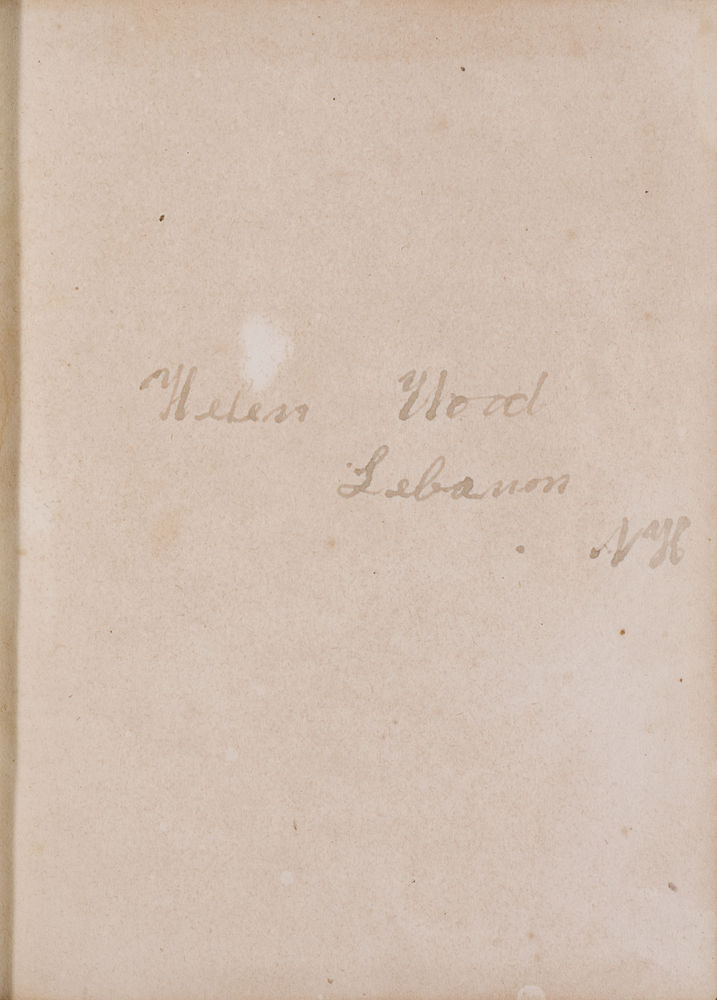 Helen Wood
Lebanon
NH